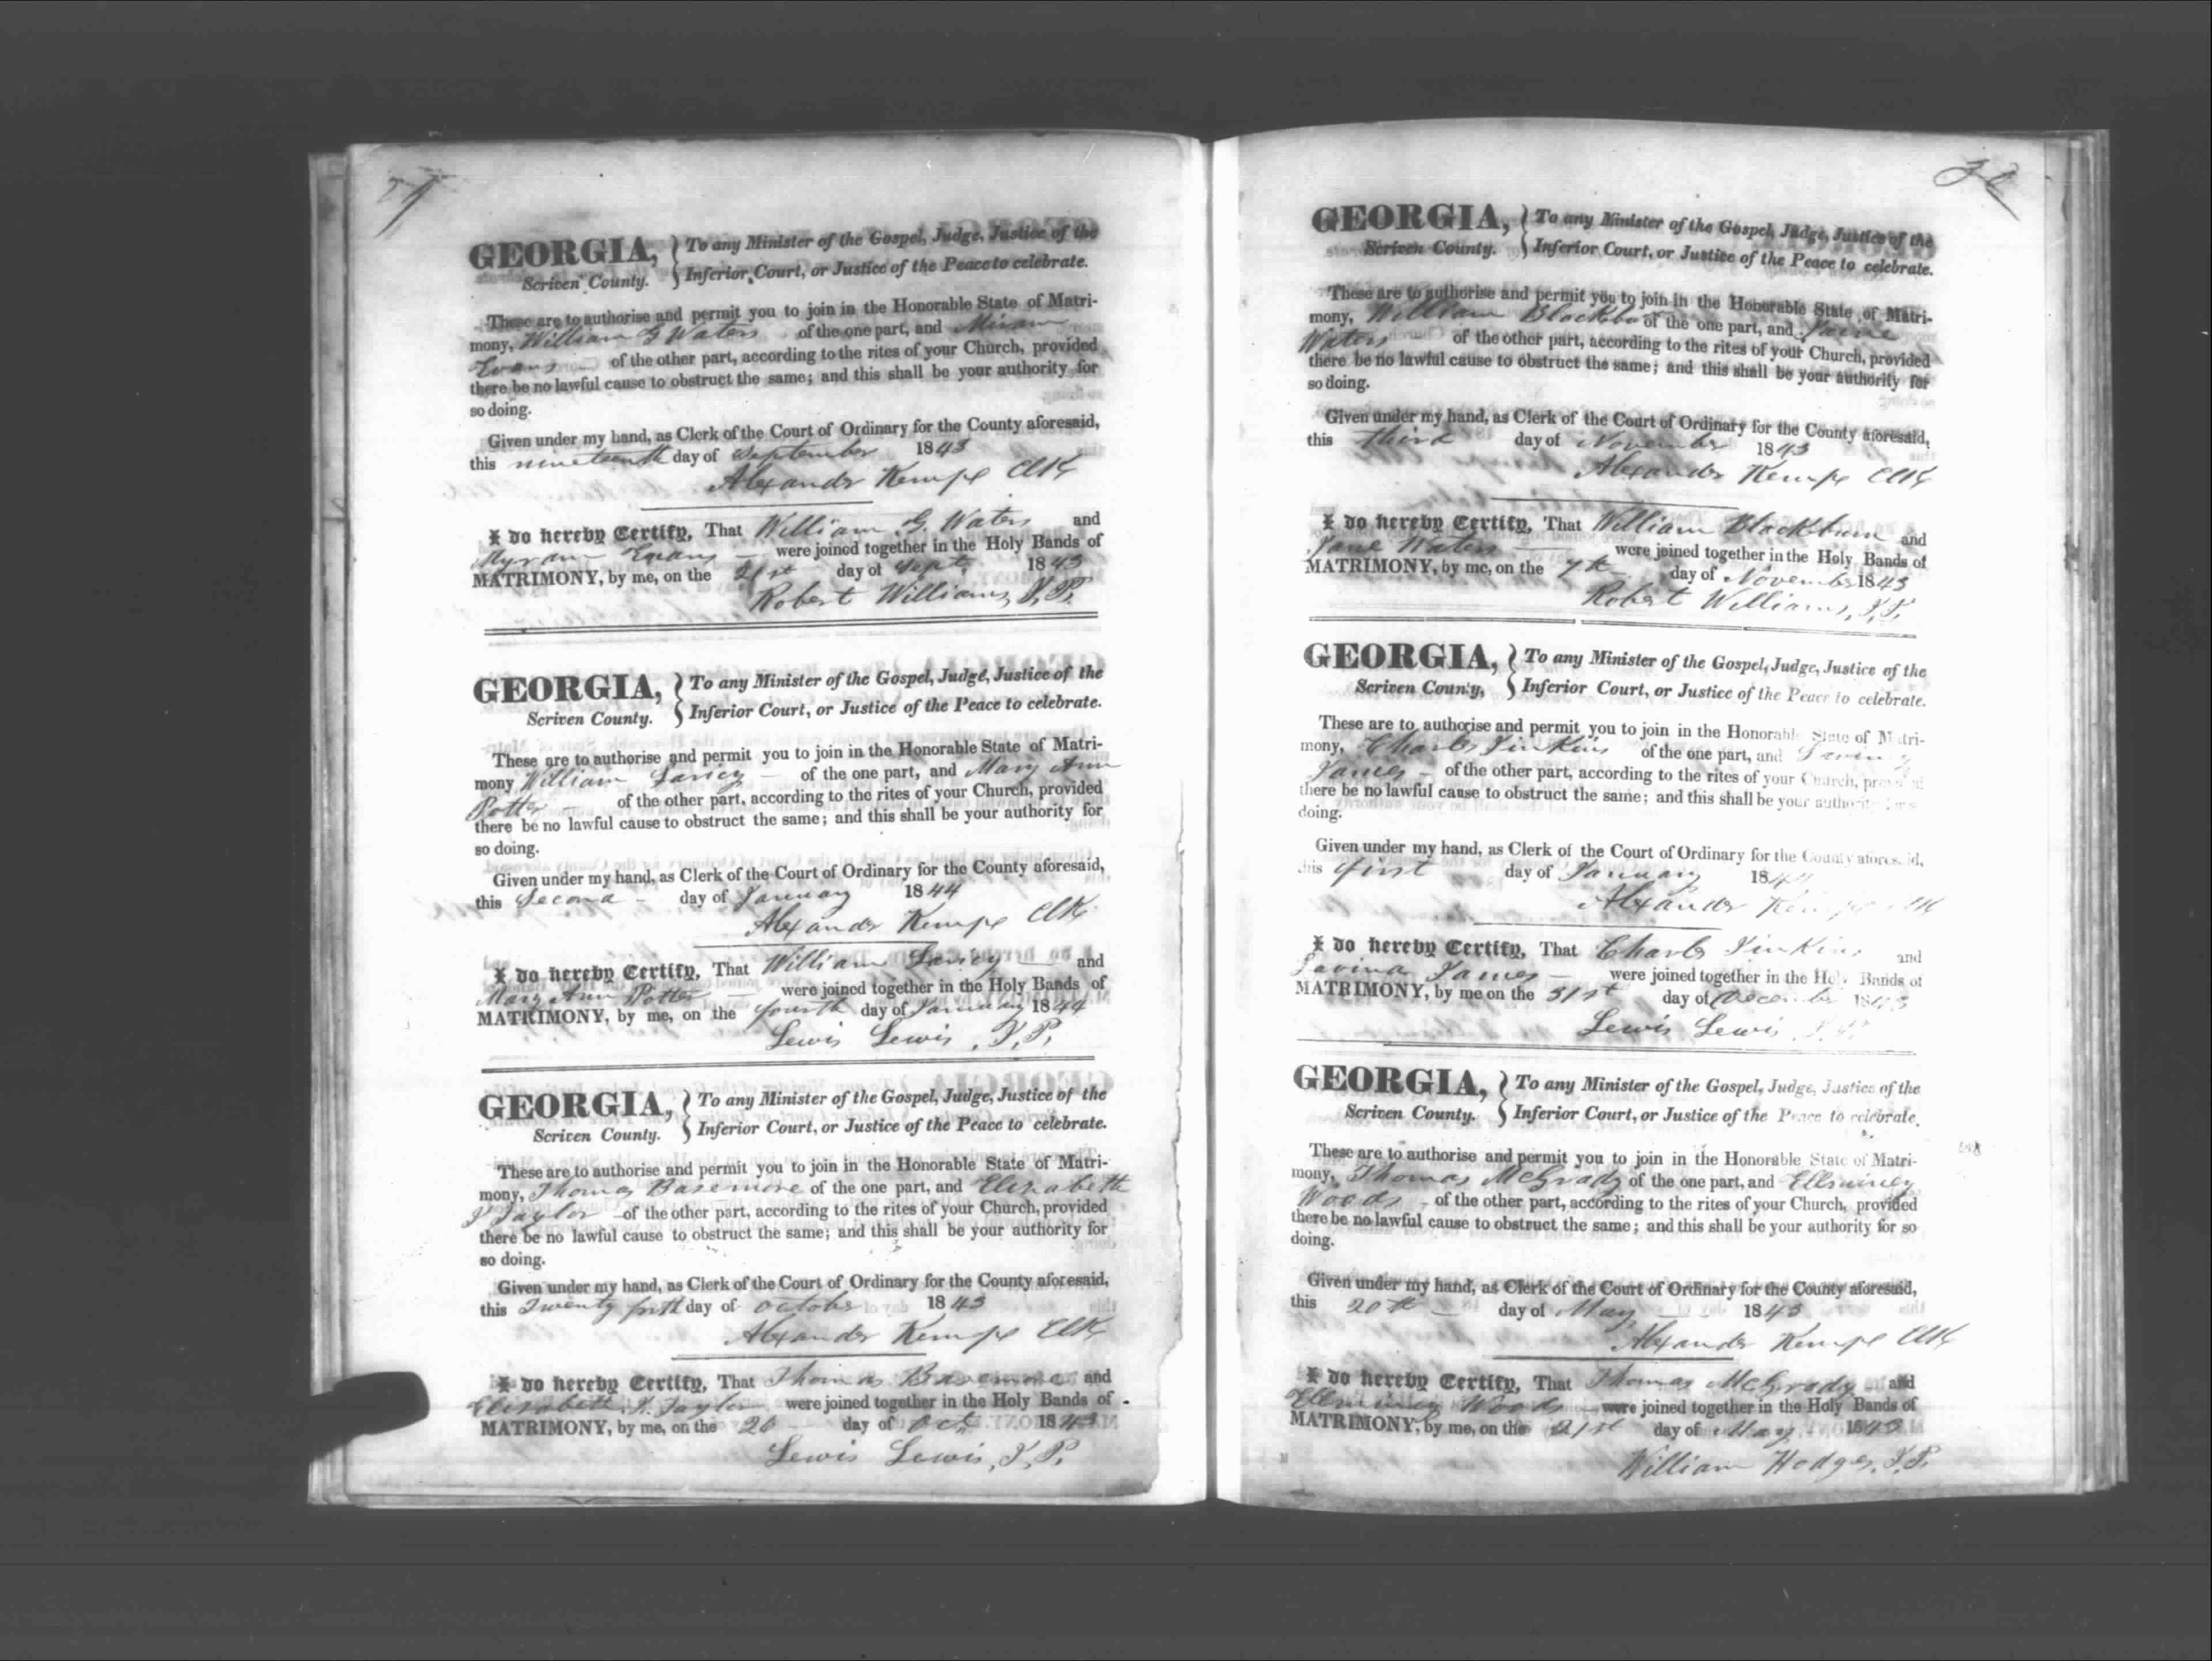 GEORGIA, } To any Minister of the Gospel, Judge, Justice of the
Scriven County. } Inferior Court, or Justice of the Peace to celebrate.
These are to authorise and permit you to join in the Honorable State of Matri-
mony, William G Waters of the one part, and Miram
Evans of the other part, according to the rites of your Church, provided
there be no lawful cause to obstruct the same; and this shall be your authority for
so doing.
Given under my hand, as Clerk of the Court of Ordinary for the County aforesaid,
this nineteenth day of September 1843
Alexander Kempe Clk
I do hereby Certify, That William G. Waters and
Myram Evans were joined together in the Holy Bands of
MATRIMONY, by me, on the 21st day of Sept 1843
Robert Williams, J.P.
GEORGIA, } To any Minister of the Gospel, Judge, Justice of the
Scriven County. } Inferior Court, or Justice of the Peace to celebrate.
These are to authorise and permit you to join in the Honorable State of Matri-
mony William of the one part, and Mary Ann
Potter of the other part, according to the rites of your Church, provided
there be no lawful cause to obstruct the same; and this shall be your authority for
so doing.
Given under my hand, as Clerk of the Court of Ordinary for the County aforesaid,
this Second day of January 1844
Alexander Kempe Clk
I do hereby Certify, That William and
Mary Ann Potter were joined together in the Holy Bands of
MATRIMONY, by me, on the fourth day of January 1844
Lewis Lewis, J.P.
GEORGIA, } To any Minister of the Gospel, Judge, Justice of the
Scriven County. } Inferior Court, or Justice of the Peace to celebrate.
These are to authorise and permit you to join in the Honorable State of Matri-
mony, Thomas Basemore of the one part, and Elizabeth
J Taylor of the other part, according to the rites of your Church, provided
there be no lawful cause to obstruct the same; and this shall be your authority for
so doing.
Given under my hand, as Clerk of the Court of Ordinary for the County aforesaid,
this Twenty forth day of October 1843
Alexander Kempe Clk
I do hereby Certify, That Thomas Basemore and
Elizabeth J. Taylor were joined together in the Holy Bands of
MATRIMONY, by me, on the 26 day of Oct 1843
Lewis Lewis, J.P.
GEORGIA, } To any Minister of the Gospel, Judge, Justice of the
Scriven County. } Inferior Court, or Justice of the Peace to celebrate.
These are to authorise and permit you to join in the Honorable State of Matri-
mony, William of the one part, and Jane
Waters of the other part, according to the rites of your Church, provided
there be no lawful cause to obstruct the same; and this shall be your authority for
so doing.
Given under my hand, as Clerk of the Court of Ordinary for the County aforesaid,
this third day of November 1843
Alexander Kempe Clk
I do hereby Certify, That William Blackburn and
Jane Waters were joined together in the Holy Bands of
MATRIMONY, by me, on the 7th day of November 1843
Robert Williams, J.P.
GEORGIA, } To any Minister of the Gospel, Judge, Justice of the
Scriven County, } Inferior Court, or Justice of the Peace to celebrate.
These are to authorise and permit you to join in the Honorable State of Matri-
mony, Charls Jinkins of the one part, and
James of the other part, according to the rites of your Church, provided
there be no lawful cause to obstruct the same; and this shall be your authority for so
doing.
Given under my hand, as Clerk of the Court of Ordinary for the County aforesaid,
this first day of January 1844
Alexander Kempe Clk
I do hereby Certify, That Charls Jinkins and
Lavina James were joined together in the Holy Bands of
MATRIMONY, by me on the 31st day of December 1843
Lewis Lewis J.P.
GEORGIA, } To any Minister of the Gospel, Judge, Justice of the
Scriven County. } Inferior Court, or Justice of the Peace to celebrate.
These are to authorise and permit you to join in the Honorable State of Matri-
mony, Thomas McGrady of the one part, and Ellminey
Woods of the other part, according to the rites of your Church, provided
there be no lawful cause to obstruct the same; and this shall be your authority for so
doing.
Given under my hand, as Clerk of the Court of Ordinary for the County aforesaid,
this 20th day of May 1843
Alexander Kempe Clk
I do hereby Certify, That Thomas McGrady and
Ellminey Woods were joined together in the Holy Bands of
MATRIMONY, by me, on the 21st day of May 1843
William Hodges, J.P.